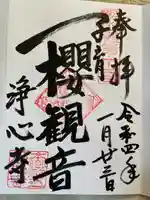 奉拝
令和四年
一月廿三日
子育
一櫻観音
浄心寺